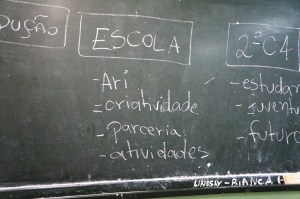 DUÇÃO
ESCOLA
- Ari
= criatividade
- parceria
- atividades
2ªC4
- estudar
= juventu
- future
LINDSAY - BIANCA